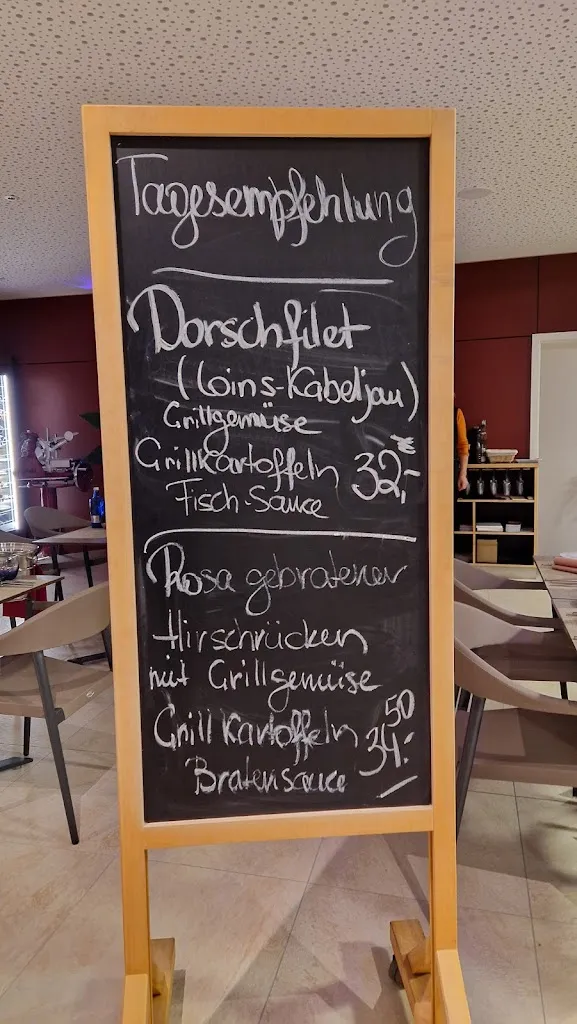 Tagesempfehlung
Dorschfilet
(Loins-Kabeljau)
Grillgemüse
Grillkartoffeln 32,- €
Fisch-Sauce
Rosa gebratener
Hirschrücken
mit Grillgemüse
Grill Kartoffeln 34.50
Bratensauce